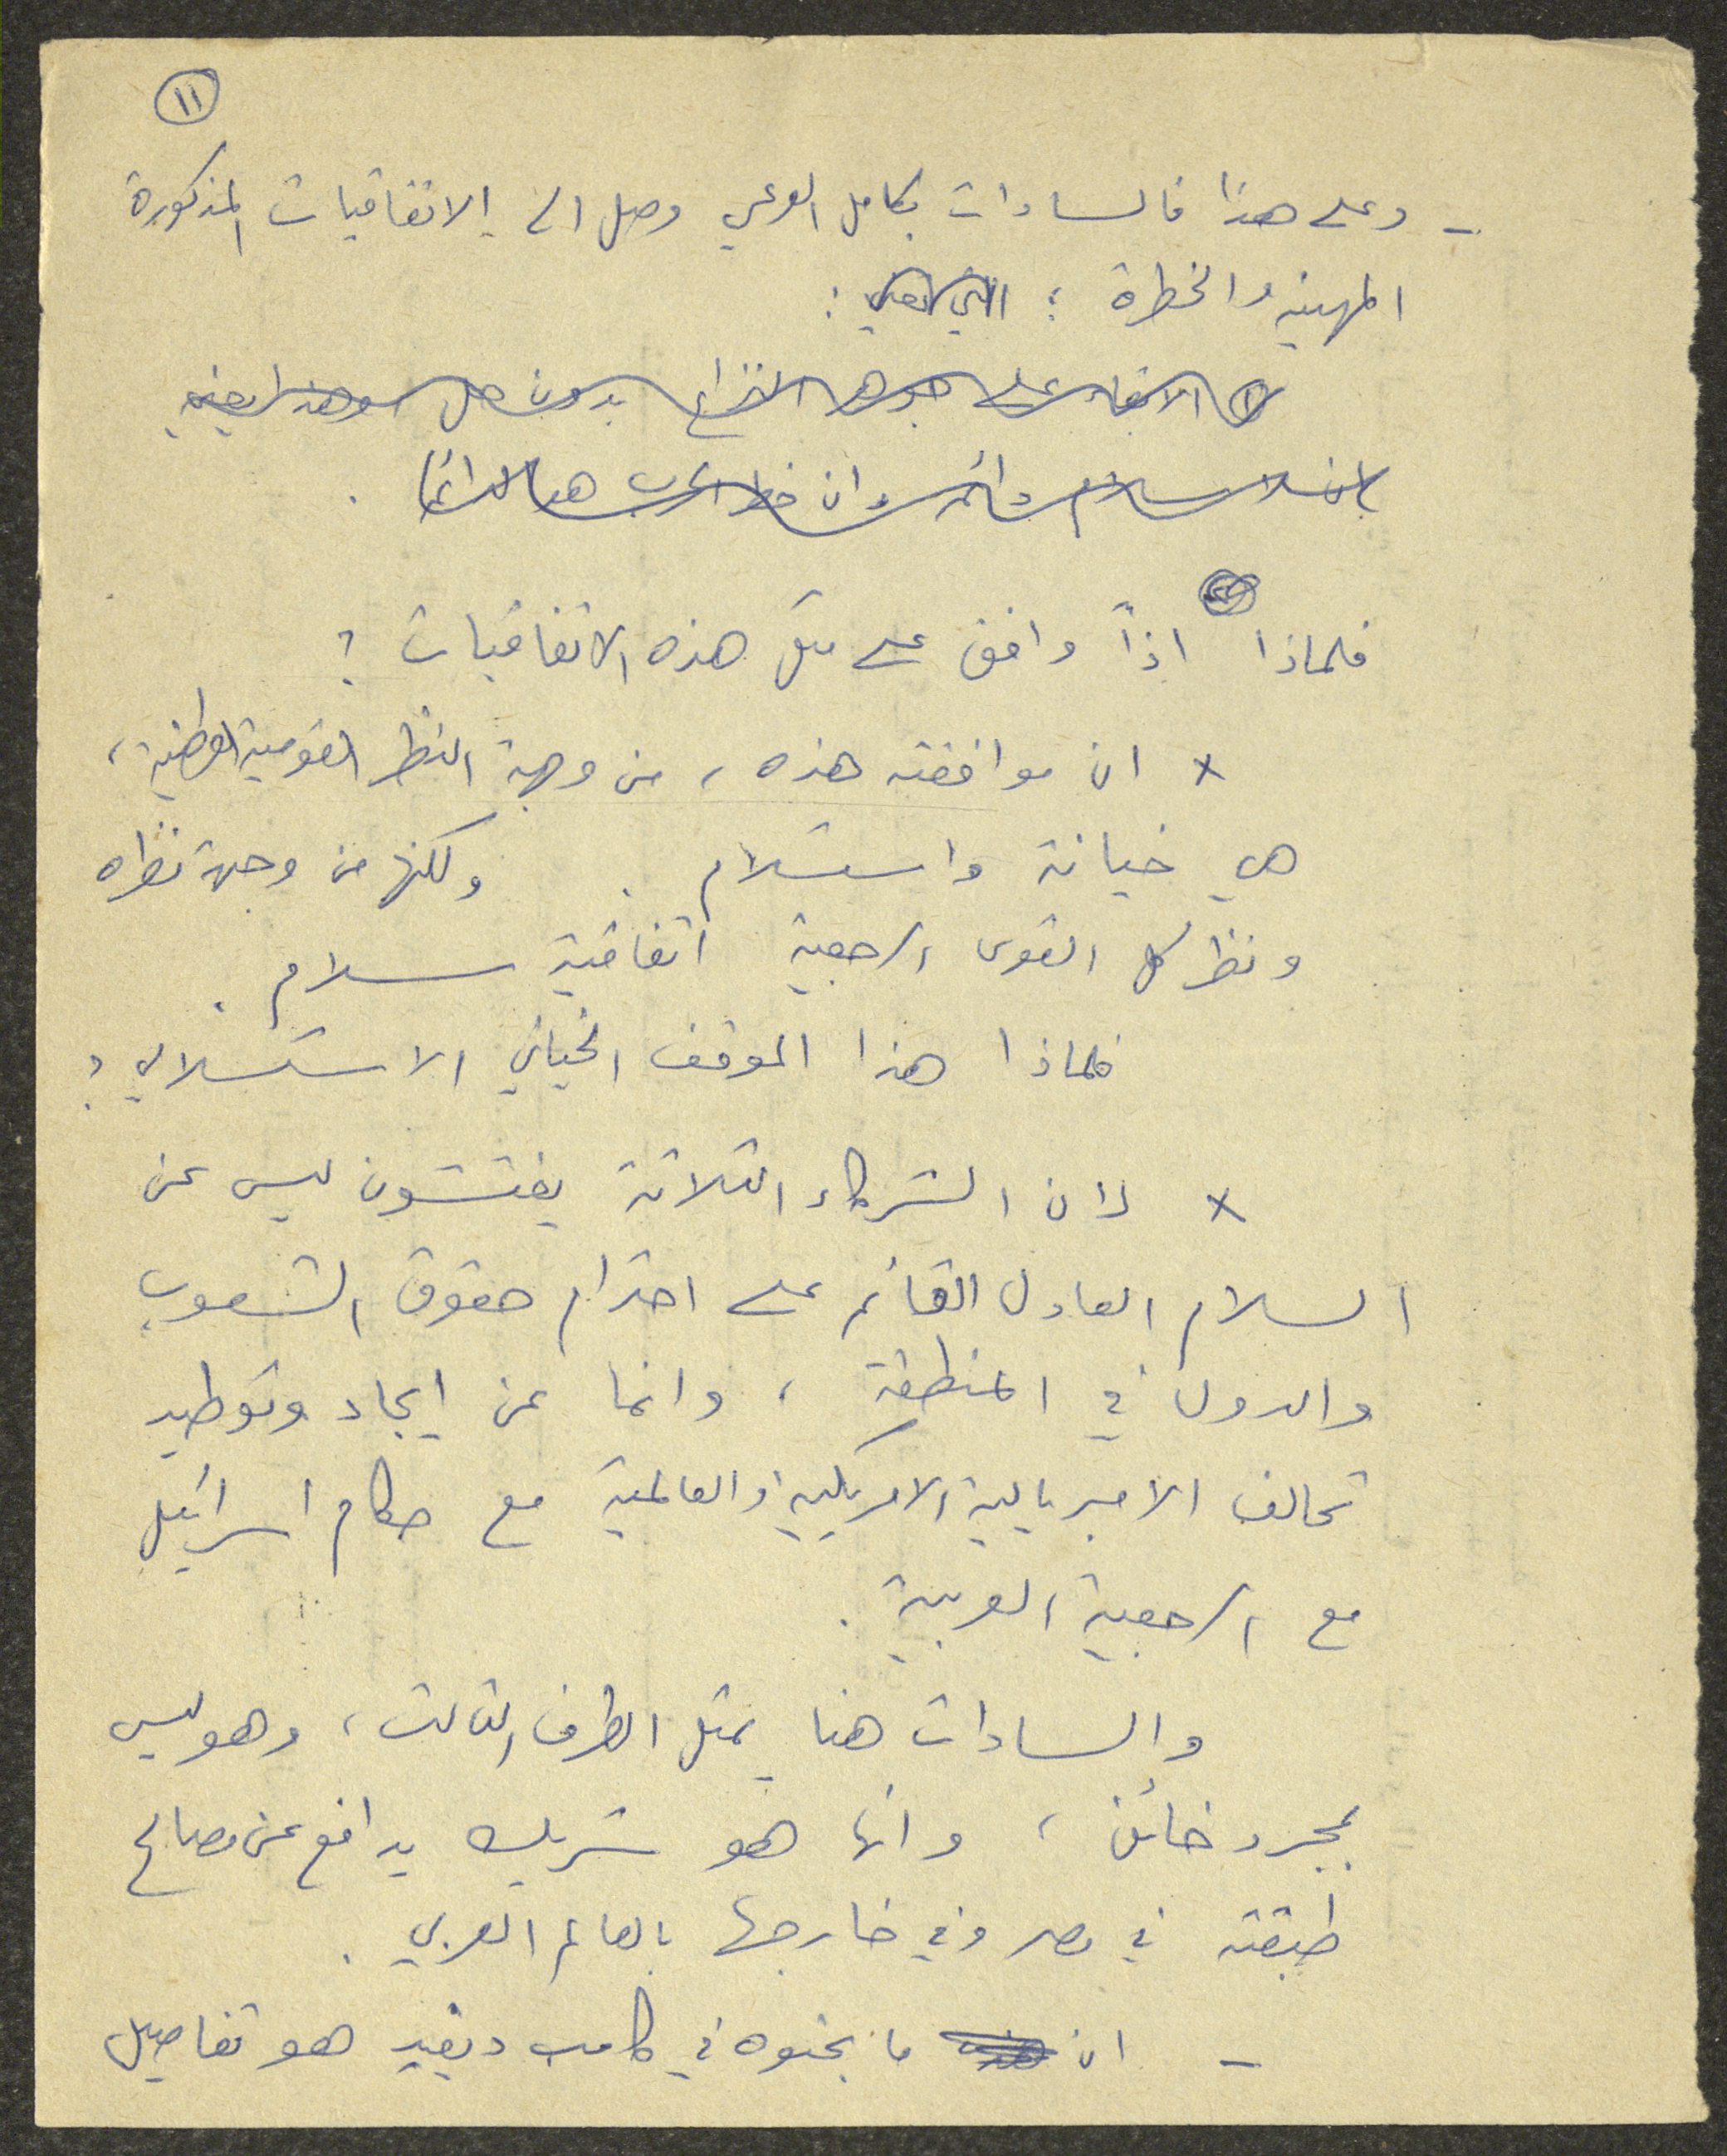 ١١
- وعلى هذا فالسادات بكامل الوعي وصل الى الاتفاقيات المذكورة
المهينة والخطرة : التي تعني :
① الابقاء على جوهر النزاع بدون حل وهذا يعني
بان لا سلام دائم وان خطر الحرب هنا دائما .
فلماذا اذاً وافق على مثل هذه الاتفاقيات ؟
× ان موافقته هذه ، من وجهة النظر القومية الوطنية ،
هي خيانة واستسلام . ولكنها من وجهة نظره
ونظر كل القوى الرجعية اتفاقية سلام .
فلماذا هذا الموقف الخياني الاستسلامي ؟
× لان الشركاء الثلاثة يفتشون ليس عن
السلام العادل القائم على احترام حقوق الشعوب
والدول في المنطقة ، وانما عن ايجاد وتوطيد
تحالف الامبريالية الامريكية والعالمية مع حكام اسرائيل
مع الرجعية العربية .
والسادات هنا يمثل الطرف الثالث ، وهو ليس
بمجرد خائن ، وانما هو شريك يدافع عن مصالح
طبقته في مصر وفي خارجها بالعالم العربي .
- ان ما بحثوه في كامب ديفيد هو تفاصيل